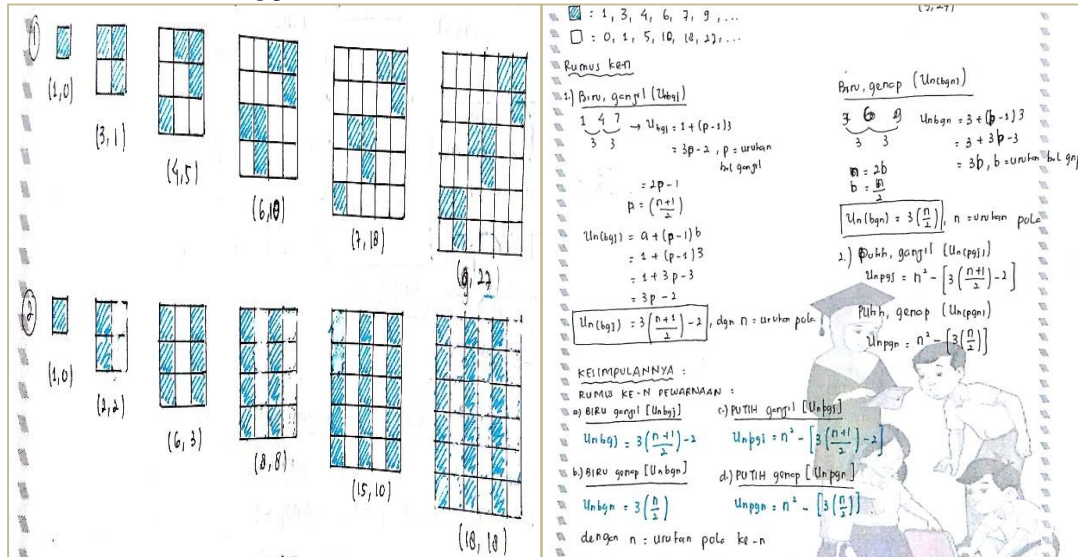 1
(1,0)
(3,1)
(4,5)
(6,10)
(7,18)
(9,27)
2
(1,0)
(2,2)
(6,3)
(8,8)
(15,10)
(18,18)
: 1, 3, 4, 6, 7, 9, ...
: 0, 1, 5, 10, 18, 27, ...
Rumus ke-n
1.) Biru, ganjil (Unbgj)
1 4 7
3 3
→ Ubgj = 1 + (p-1)3
= 3p-2, p = urutan bil ganjil
= 2p-1
p = (n+1/2)
Un(bgj) = a + (p-1)b
= 1 + (p-1)3
= 1 + 3p-3
= 3p-2
Un(bgj) = 3(n+1/2)-2, dgn n = urutan pola
Biru, genap (Un(bgn))
3 6 9
3 3
Unbgn = 3 + (p-1)3
= 3 + 3p-3
= 3b, b = urutan bil
n = 2b
b = n/2
Un(bgn) = 3(n/2), n = urutan pola
2.) Putih, ganjil (Un(pgj))
Unpgj = n² - [3(n+1/2)-2]
Putih, genap (Un(pgn))
Unpgn = n² - [3(n/2)]
KESIMPULANNYA :
RUMUS KE-N PEWARNAAN :
a) BIRU ganjil [Unbgj]
Unbgj = 3(n+1/2)-2
b.) BIRU genap [Unbgn]
Unbgn = 3(n/2)
c.) PUTIH ganjil [Unpgj]
Unpgj = n² - [3(n+1/2)-2]
d.) PUTIH genap [Unpgn]
Unpgn = n² - [3(n/2)]
dengan n = urutan pola ke-n